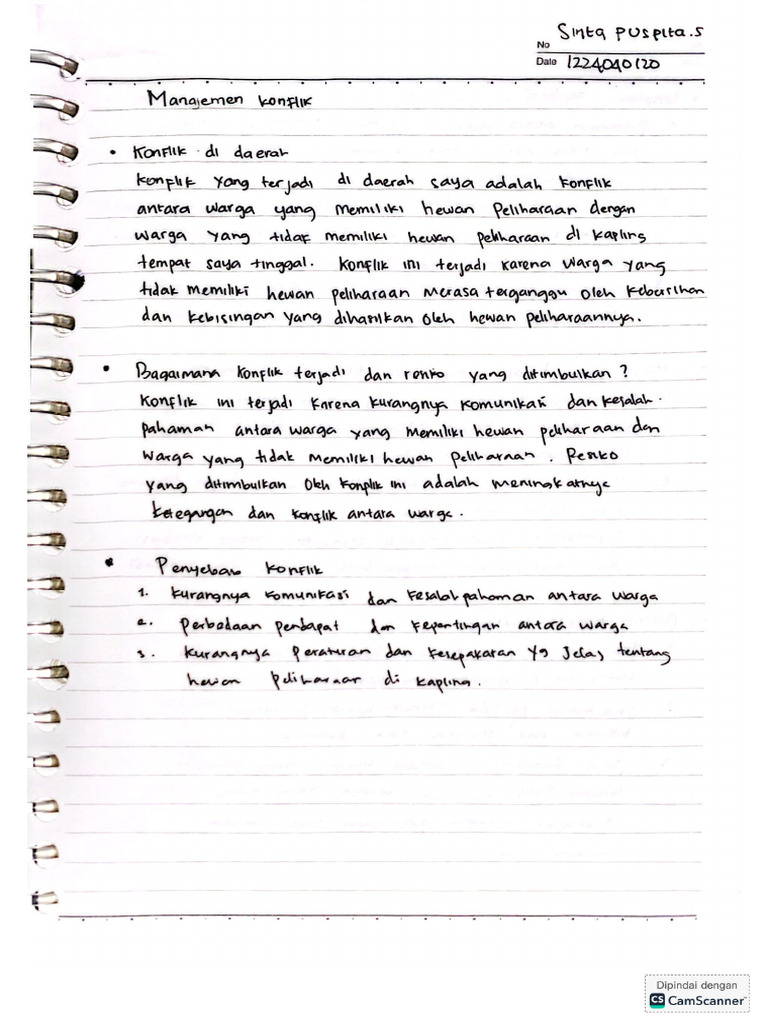 Sinta Puspita.S
No
Date 1224040120
Manajemen Konflik
• Konflik di daerah
Konflik yang terjadi di daerah saya adalah konflik
antara warga yang memiliki hewan peliharaan dengan
warga yang tidak memiliki hewan peliharaan di kapling
tempat saya tinggal. Konflik ini terjadi karena warga yang
tidak memiliki hewan peliharaan merasa terganggu oleh kebersihan
dan kebisingan yang dihasilkan oleh hewan peliharaannya.
• Bagaimana konflik terjadi dan resiko yang ditimbulkan?
Konflik ini terjadi karena kurangnya komunikasi dan kesalah-
pahaman antara warga yang memiliki hewan peliharaan dan
warga yang tidak memiliki hewan peliharaan. Resiko
yang ditimbulkan oleh konplik ini adalah meningkatnya
ketegangan dan konflik antara warga.
• Penyebab konflik
1. kurangnya komunikasi dan kesalah pahaman antara warga
2. Perbedaan pendapat dan kepentingan antara warga
3. kurangnya peraturan dan kesepakatan yg jelas tentang
hewan peliharaan di kapling.
Dipindai dengan
CS CamScanner